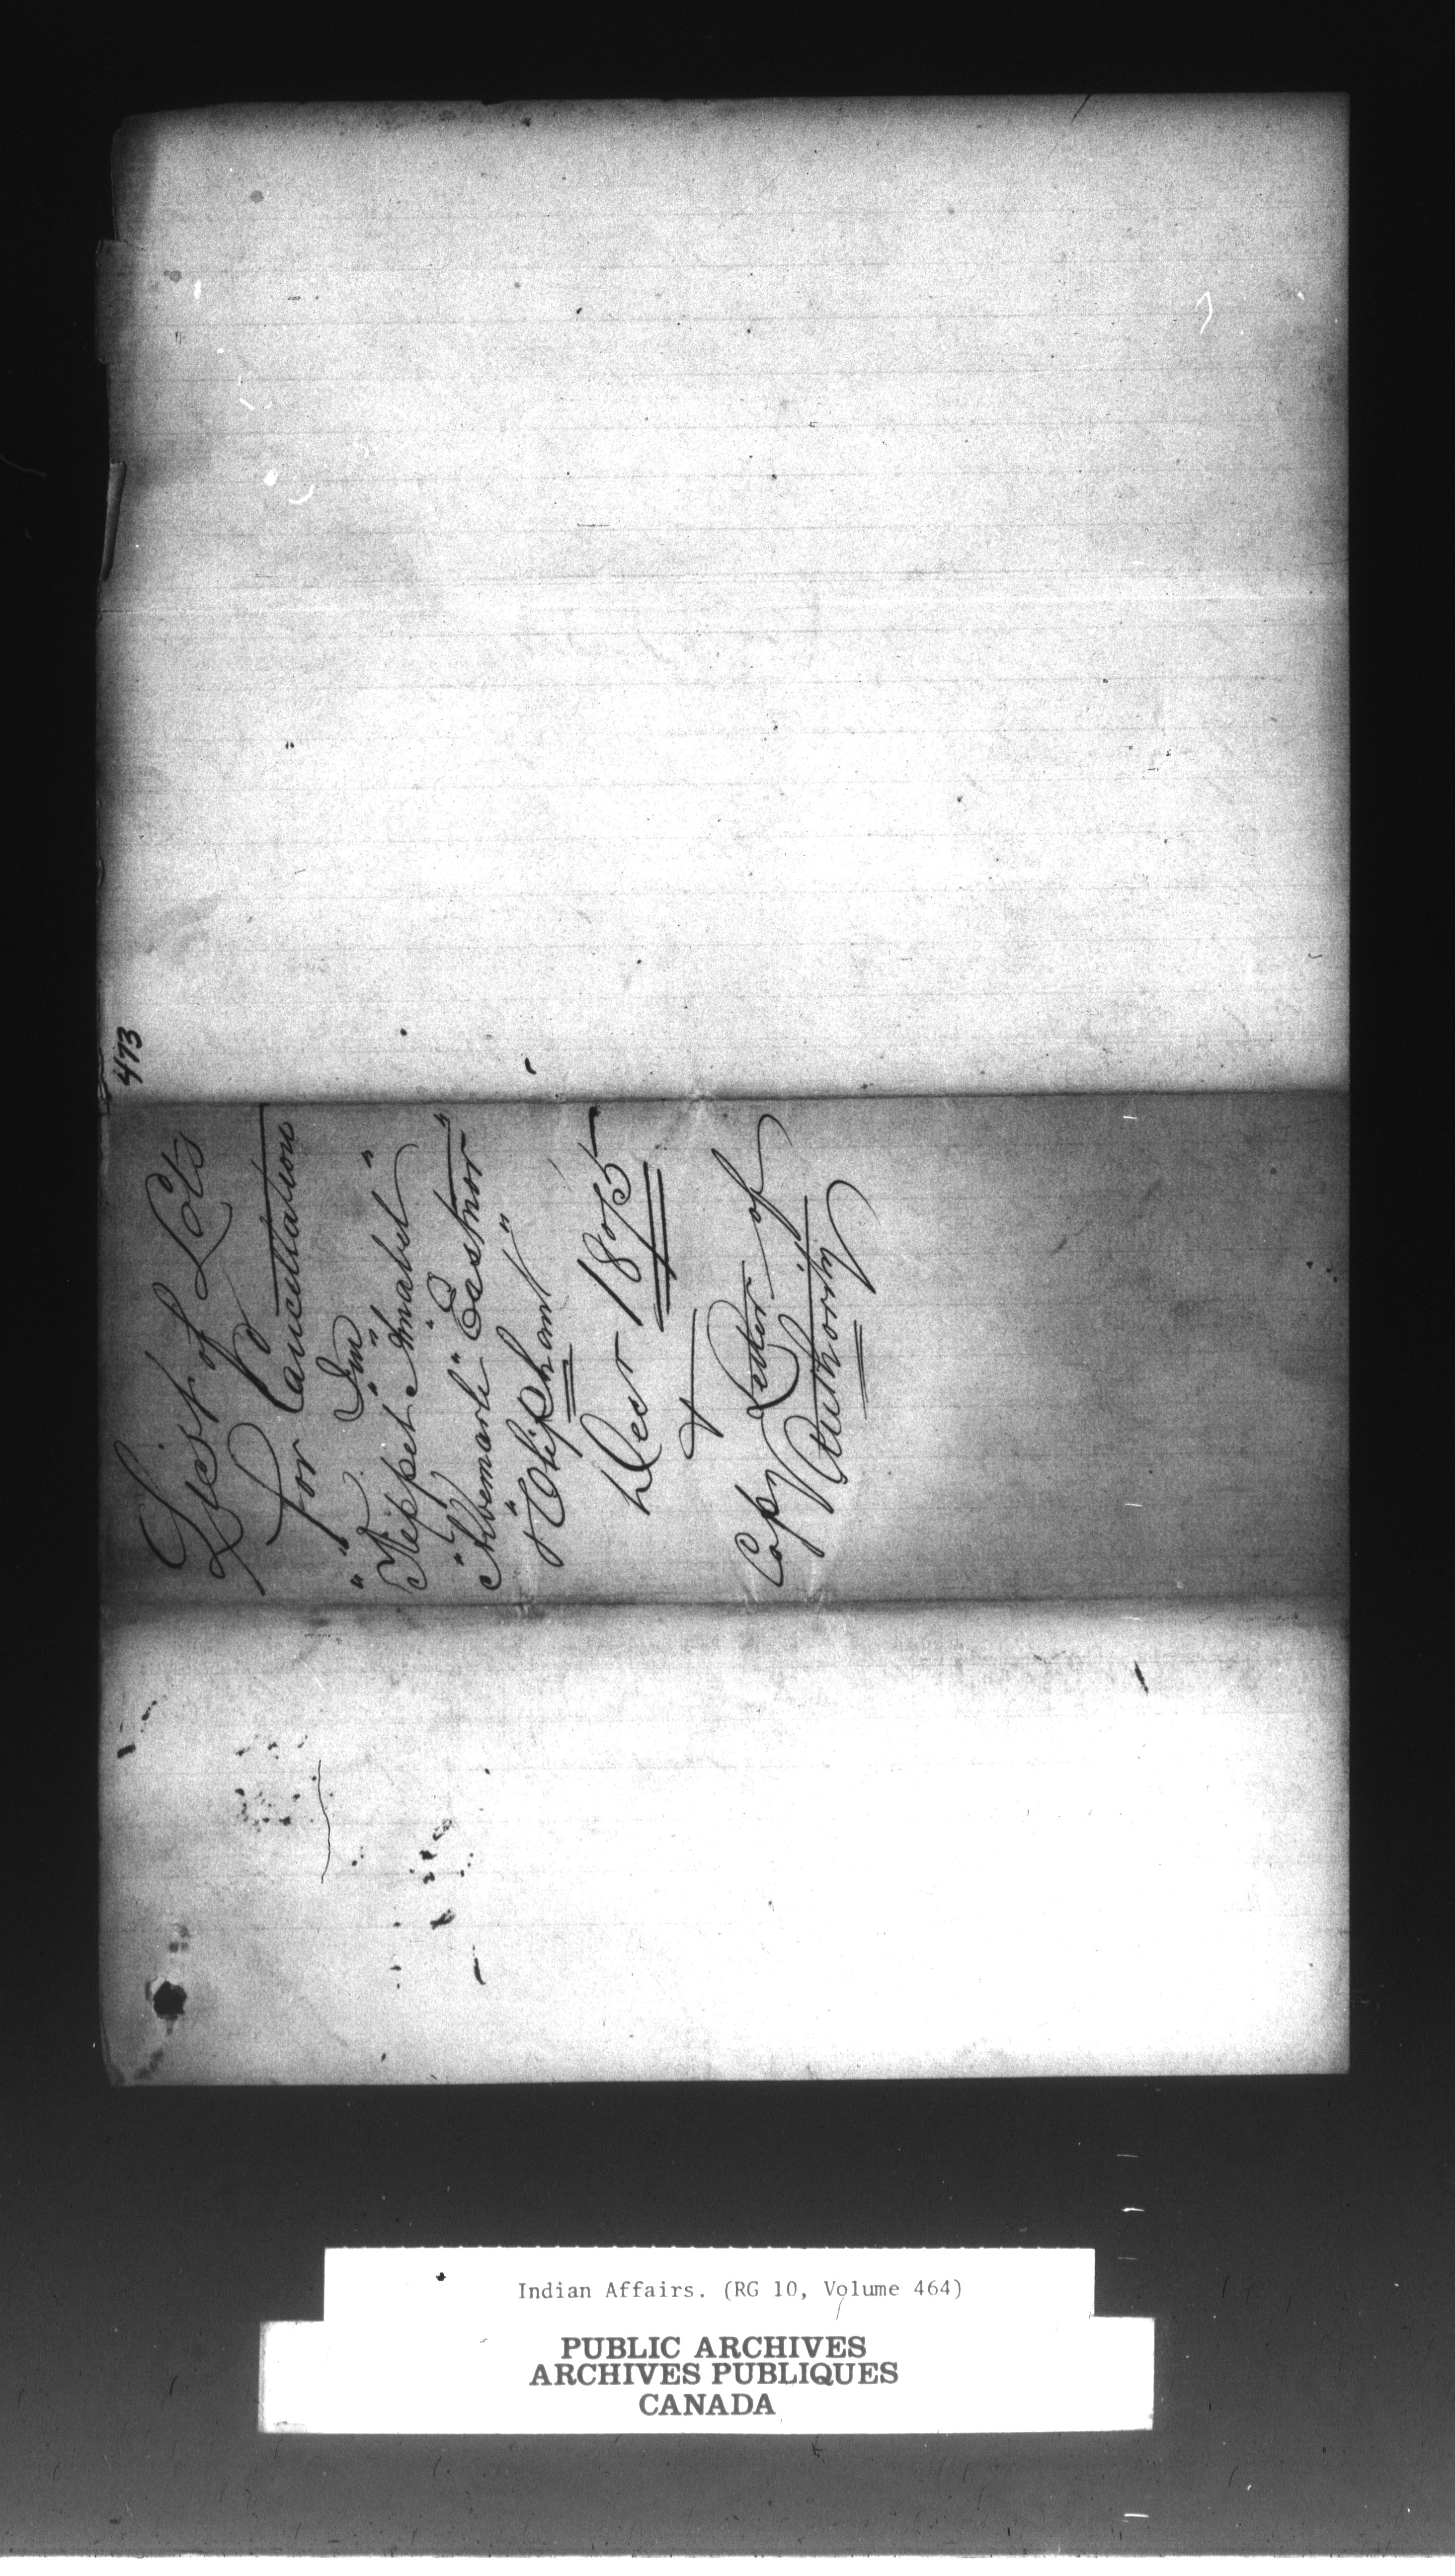 473
List of Lots
For Cancellation
In
" Keppel " " Amabel "
" Albemarle " " Eastnor "
" Oliphant "
Decr 1865
&
Copy Letter of
Authority
Indian Affairs. (RG 10, Volume 464)
PUBLIC ARCHIVES
ARCHIVES PUBLIQUES
CANADA